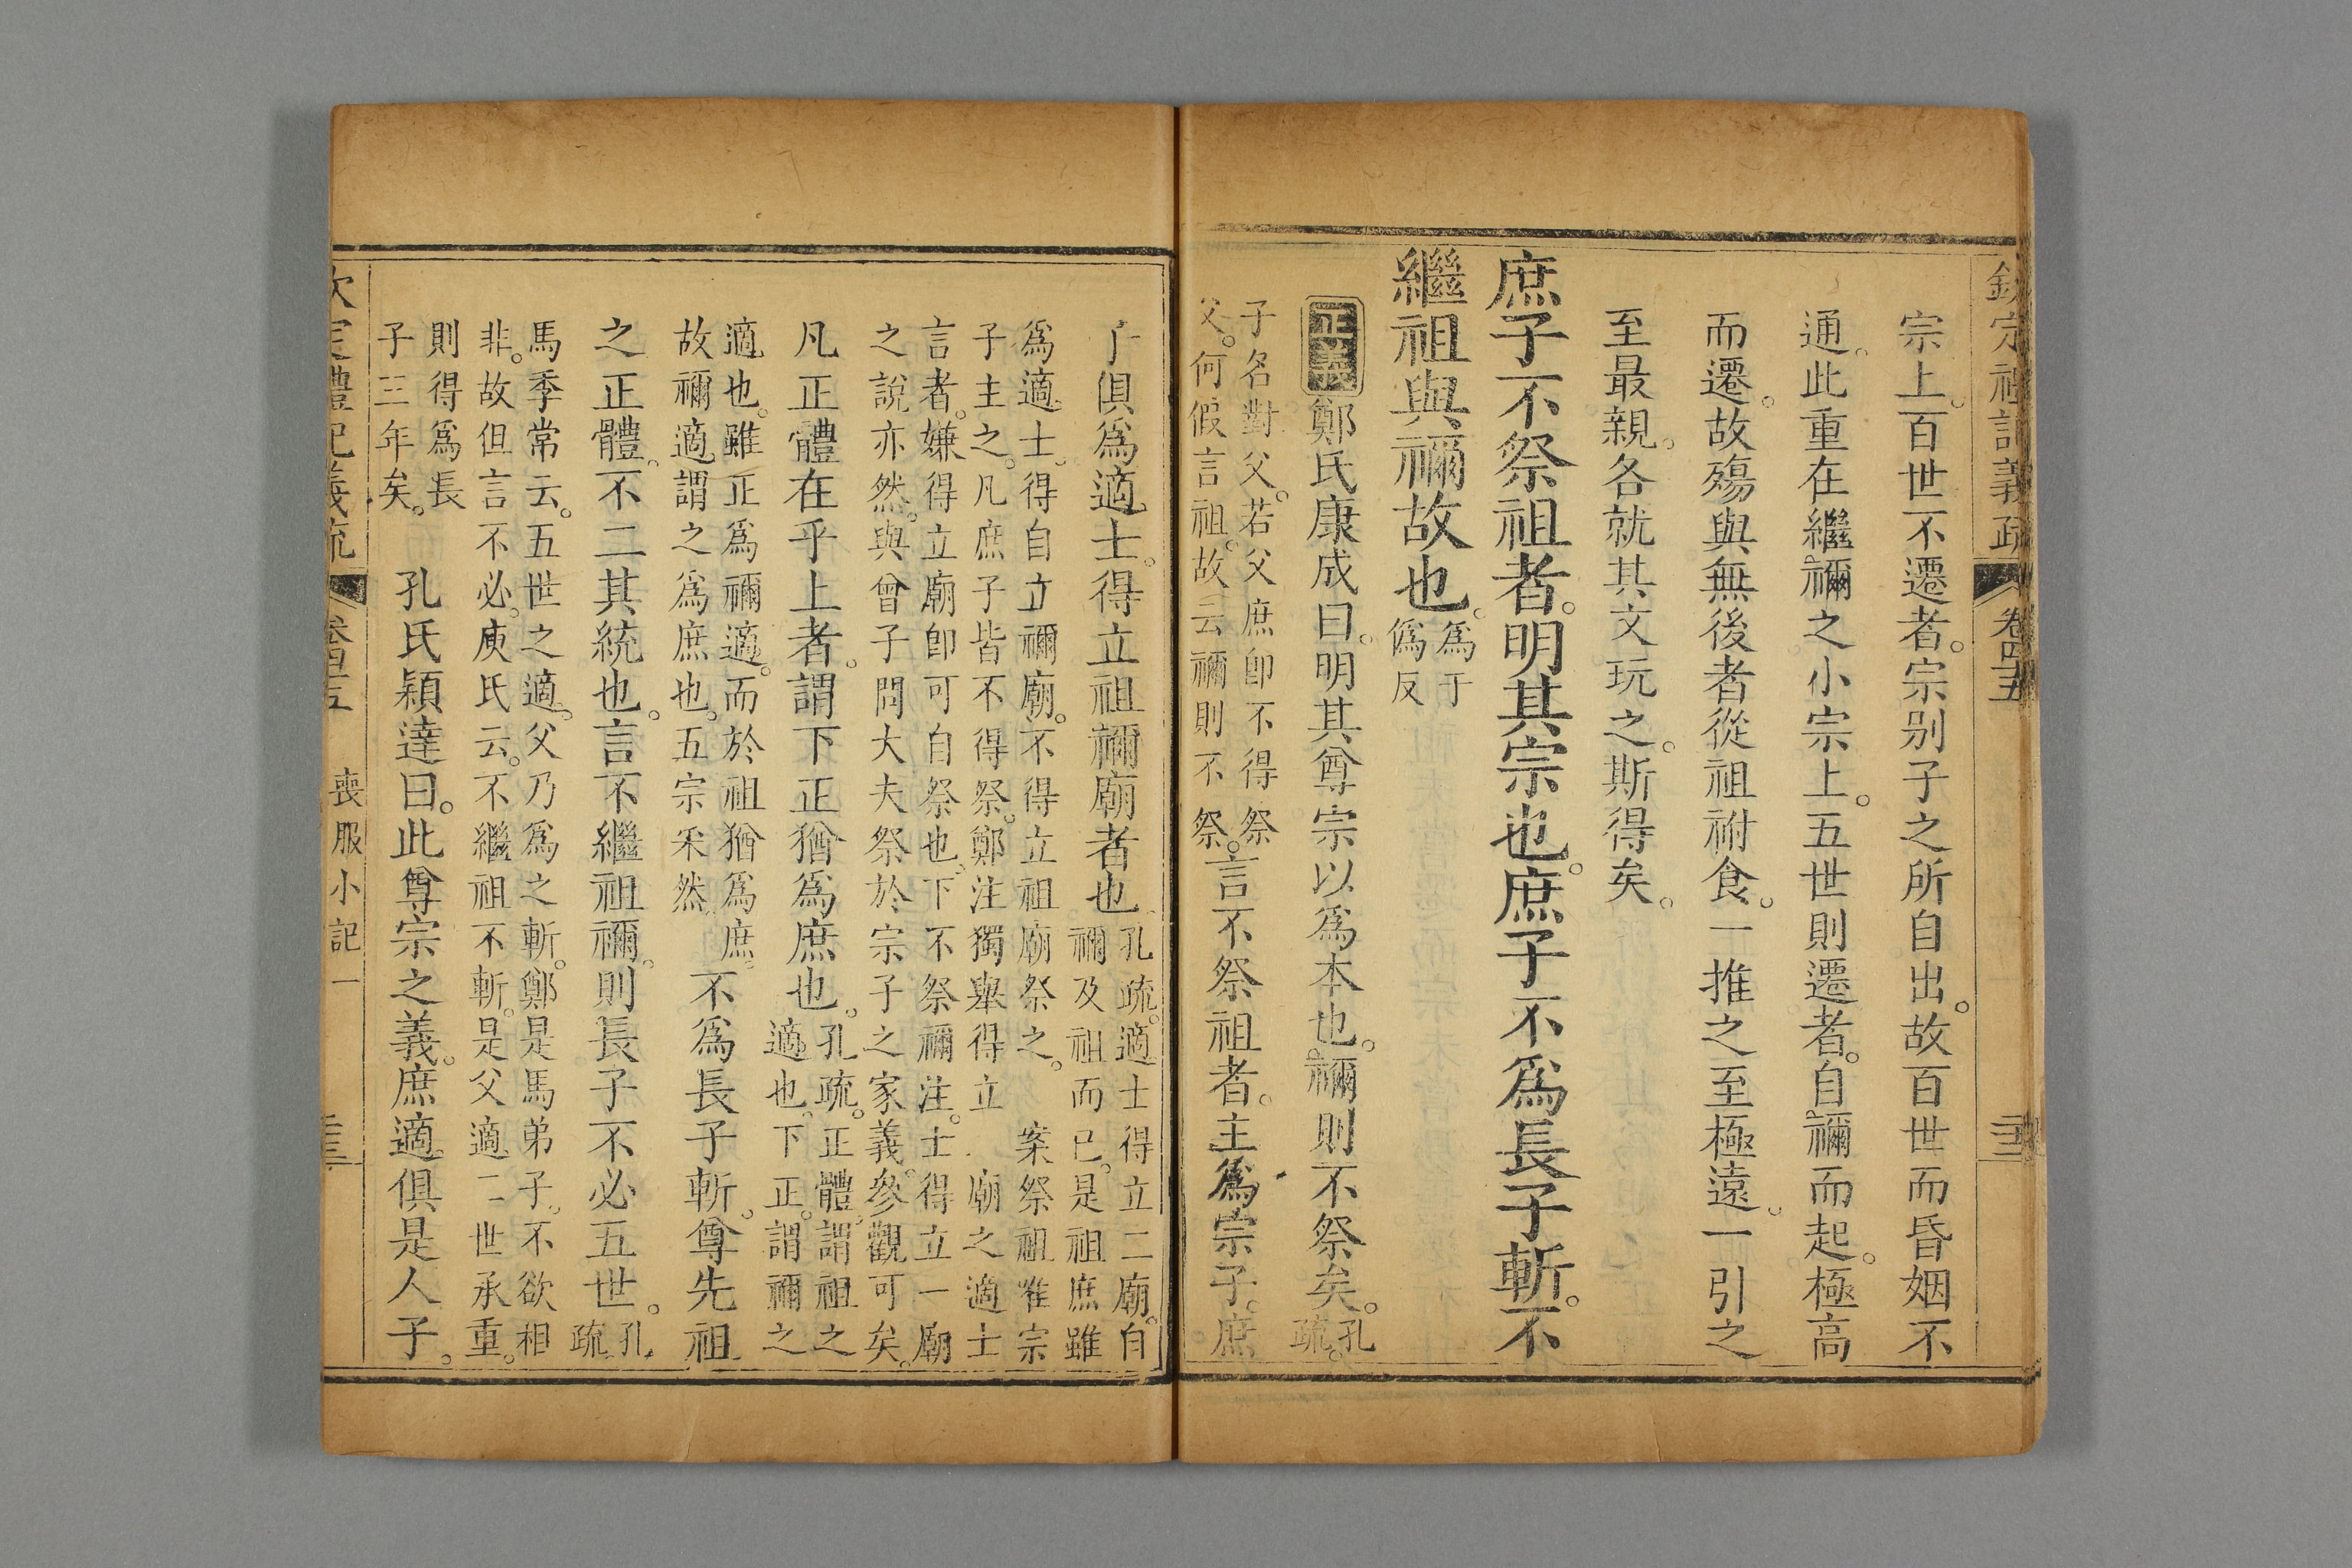 欽定禮記義疏 卷四十五
宗上。百世不遷者。宗别子之所自出。故百世而昏姻不
通。此重在繼禰之小宗上。五世則遷者。自禰而起。極高
而遷。故殤與無後者從祖祔食。一推之至極遠。一引之
至最親。各就其文玩之。斯得矣。
庶子不祭祖者。明其宗也。庶子不爲長子斬。不
繼祖與禰故也。爲于僞反
正義 鄭氏康成曰。明其尊宗以爲本也。禰則不祭矣。孔疏。
子名對父。若父庶卽不得祭
父。何假言祖。故云禰則不祭。言不祭祖者。主爲宗子。庶
子俱爲適士。得立祖禰廟者也。孔疏。適士得立二廟。自禰及祖而已。是祖庶雖
爲適士。得自立禰廟。不得立祖廟祭之。 案祭祖唯宗
子主之。凡庶子皆不得祭。鄭注獨舉得立 廟之適士
言者。嫌得立廟卽可自祭也。下不祭禰注。士得立一廟
之說亦然。與曾子問大夫祭於宗子之家義。參觀可矣。
凡正體在乎上者。謂下正猶爲庶也。孔疏。正體。謂祖之適也。下正。謂禰之
適也。雖正爲禰適。而於祖猶爲庶。
故禰適。謂之爲庶也。五宗釆然。不爲長子斬。尊先祖
之正體。不二其統也。言不繼祖禰。則長子不必五世。孔疏。
馬季常云。五世之適。父乃爲之斬。鄭是馬弟子。不欲相
非。故但言不必。庾氏云。不繼祖不斬。是父適二世承重。
則得爲長
子三年矣。 孔氏穎達曰。此尊宗之義。庶適俱是人子。
欽定禮記義疏 卷四十五 喪服小記一